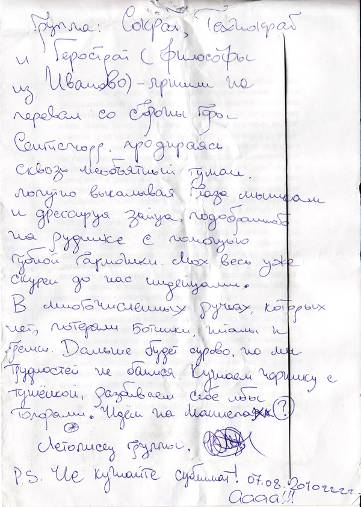 Группа: Сократ, Технократ
и Герострат (философы
из Иваново) - пришли на
перевал со стороны горы
Сентисчорр, продираясь
сквозь необъятный туман,
попутно выкалывая глаза мышкам
и дрессируя зайца, подобранного
на руднике с помощью
губной гармошки. Мох весь уже
скурен до нас индейцами.
В многочисленных ручьях, которых
нет, потеряли ботинки, штаны и
гремки. Дальше будет сурово, но мы
трудностей не боимся. Кушаем чернику с
тушёнкой, разбиваем себе лбы
топорами. Идём на (?)
Летописец группы,
P.S. Не кушайте сублимат! 07.08.2010гггг
Аааа!!!